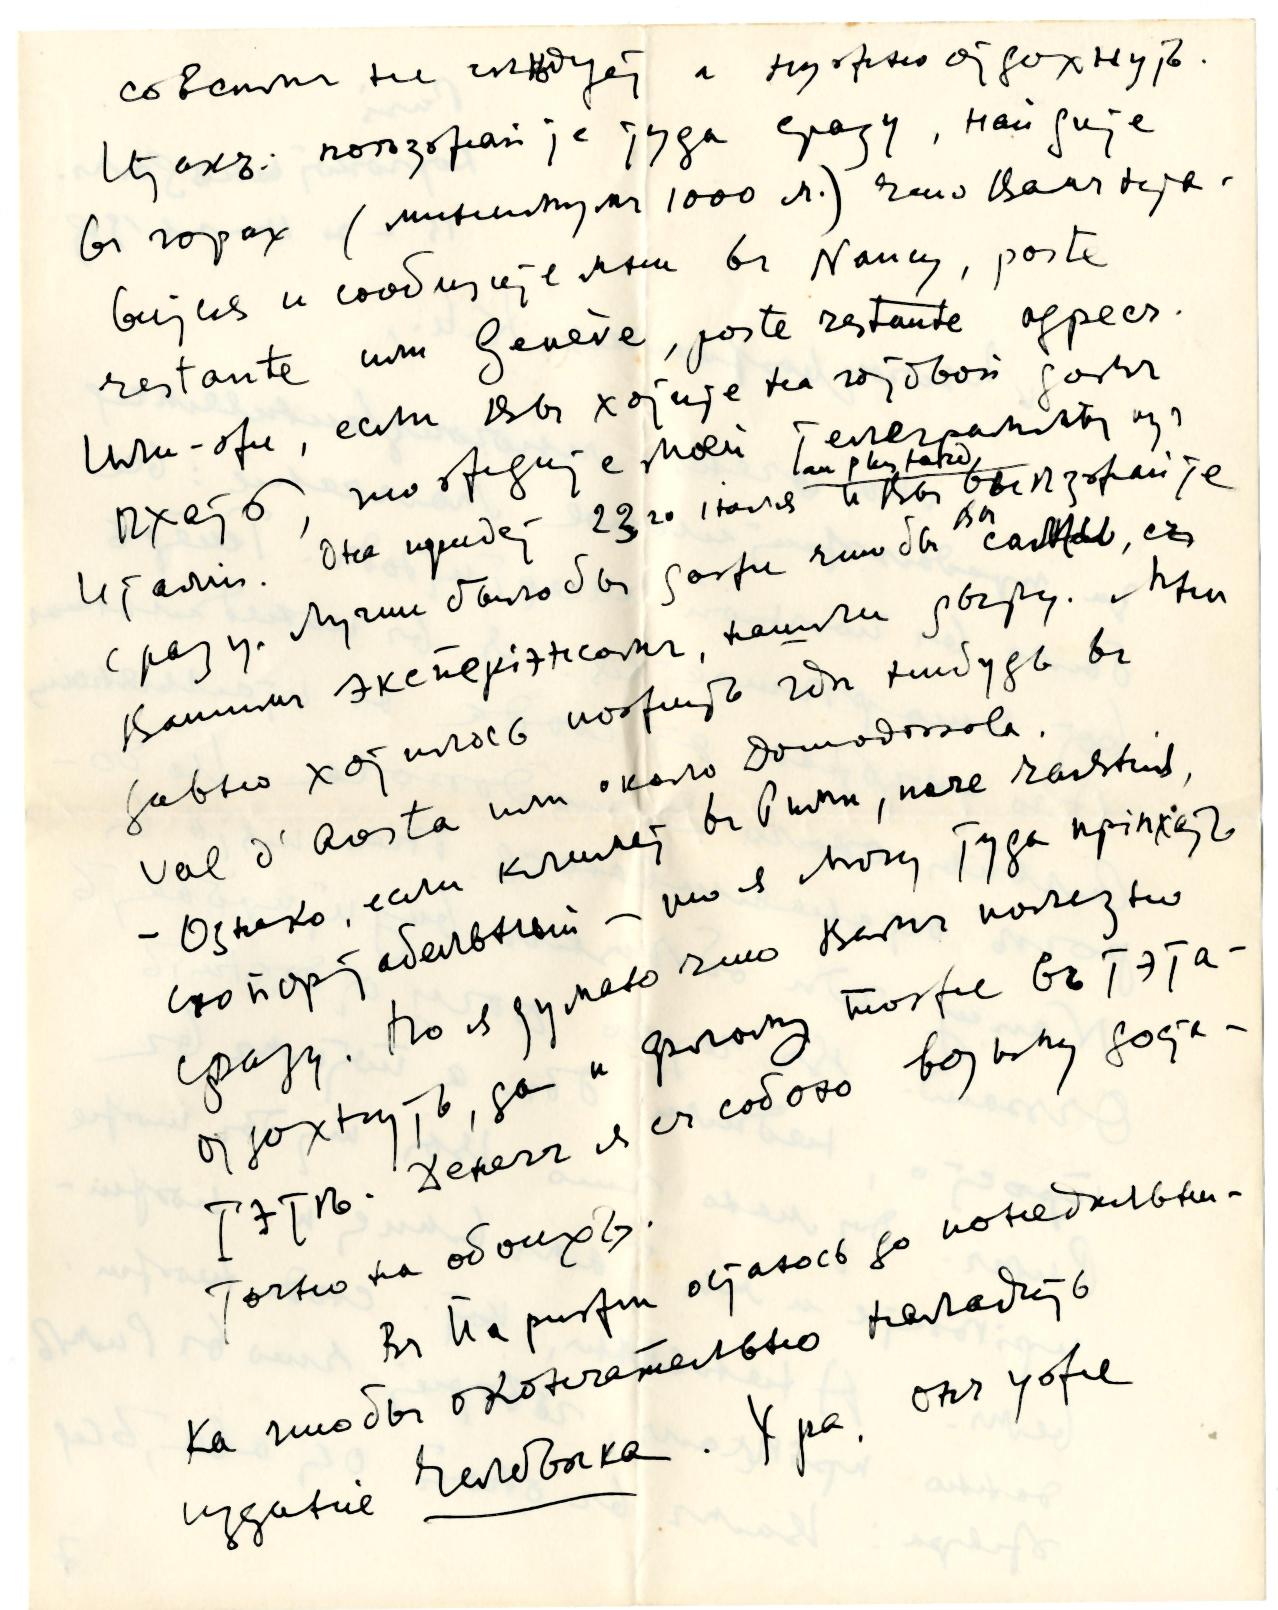 совсѣмъ не слѣдует а нужно отдохнуть.
Итакъ: поѣзжайте туда сразу, найдите
въ горах (минимумъ 1000 м.) что Вамъ нра-
вится и сообщите мнѣ въ Nancy, poste
restante или Genève, poste restante адресъ.
Или-же, если Вы хотите наготовой домъ
пхать, то ждите моей телеграммы из
Италіи. Она придет 23го июля и Вы выѣзжайте
(au plus tard)
сразу. Лучше было бы даже чтобы Вы сами, съ
Вашимъ экспері­энсомъ, нашли дыру. Мнѣ
давно хотѣлось пожить гдѣ нибудь въ
Val d'Aosta или около Domodossola.
- Однако, если климат въ Римѣ, паче чаянія,
сюпортабельный - то я могу туда пріѣхать
сразу. Но я думаю что Вамъ полезно
отдохнуть, да и физлому тоже въ ТЭТА-
ТЭТѢ. Денегъ я съ собою возьму доста-
точно на обоихъ.
Въ Парижѣ остаюсь до понедѣльни-
ка чтобы окончательно наладить
изданіе Человѣка. Ура, онъ уже